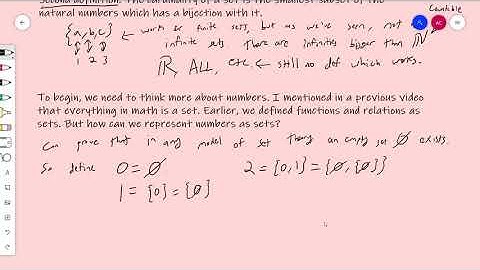 Second definition: The cardinality of a set is the smallest subset of the
natural numbers which has a bijection with it.
{a, b, c} ← works for finite sets, but as we've seen, not
1 2 3
infinite sets there are infinities bigger than ℕ
Countable
ℝ, ALL, etc. ← still no def which works.
To begin, we need to think more about numbers. I mentioned in a previous video
that everything in math is a set. Earlier, we defined functions and relations as
sets. But how can we represent numbers as sets?
Can prove that in any model of set theory an empty set ∅ exists.
So define 0 = ∅ 2 = {0, 1} = {∅, {∅}}
1 = {0} = {∅}